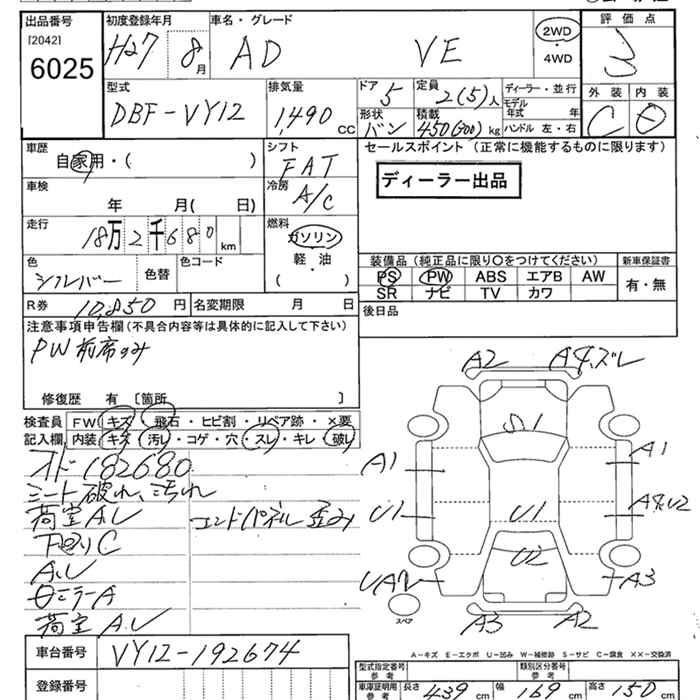 出品番号
[2042]
6025
初度登録年月
H27 8月
車名・グレード
AD VE
2WD
・
4WD
評価点
3
型式
DBF-VY12
排気量
1,490 CC
ドア 5
定員 2(5)人
形状 バン
積載 450(300)kg
ディーラー・並行
モデル
年式 年
ハンドル 左・右
外装 内装
C D
車歴
自家用・( )
シフト
FAT
セールスポイント (正常に機能するものに限ります)
ディーラー出品
車検
年 月( 日)
冷房
A/C
走行
18万2千680 km
燃料
ガソリン
軽・油
・
( )
色
シルバー
色替
色コード
装備品(純正品に限り○をつけてください)
新車保証書
PS PW ABS エアB AW
SR ナビ TV カワ
有・無
R券 10,850円
名変期限 月 日
後日品
注意事項申告欄(不具合内容等は具体的に記入して下さい)
PW前席のみ
修復歴 有 [箇所 ]
検査員
記入欄
FW キズ・飛石・ヒビ割・リペア跡・×要
内装・キズ・汚レ・コゲ・穴・スレ・キレ・破レ
メド182680
シート破れ、汚れ
荷室A.U エンドパネル歪み
下回りC
A.U
ミラーA
荷室A.U
A2 Aキズレ
S1
A1 A1
U1 U1 U2
U2
A3
A3 A2
スペア
A-キズ E-エクボ U-凹み W-補修跡 S-サビ C-腐食 XX-交換済
車台番号
VY12-192674
登録番号
型式指定番号
参考
類別区分番号
参考
車庫証明用
参考
長さ 439 cm
幅 169 cm
高さ 150 cm